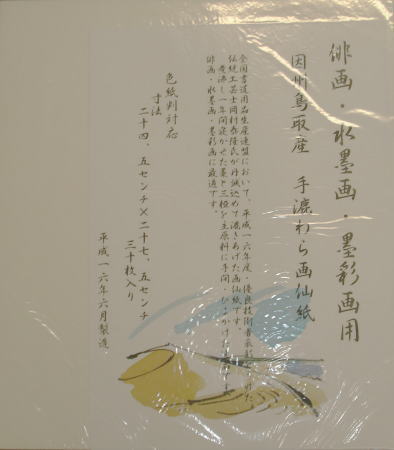 俳画・水墨画・墨彩画用
因州鳥取産　手漉わら画仙紙
全国書道用品生産連盟において、平成一六年度・優良技術者表彰を受けた
伝統工芸士岡村泰隆氏が丹誠込めて漉きあげた画仙紙です。
煮沸し一年間寝かせた藁と三椏を主原料に手間・ひまかけた
俳画・水墨画・墨彩画に最適です。
色紙判対応
寸法
二十四、五センチ×二十七、五センチ
三十枚入り
平成一六年六月製造